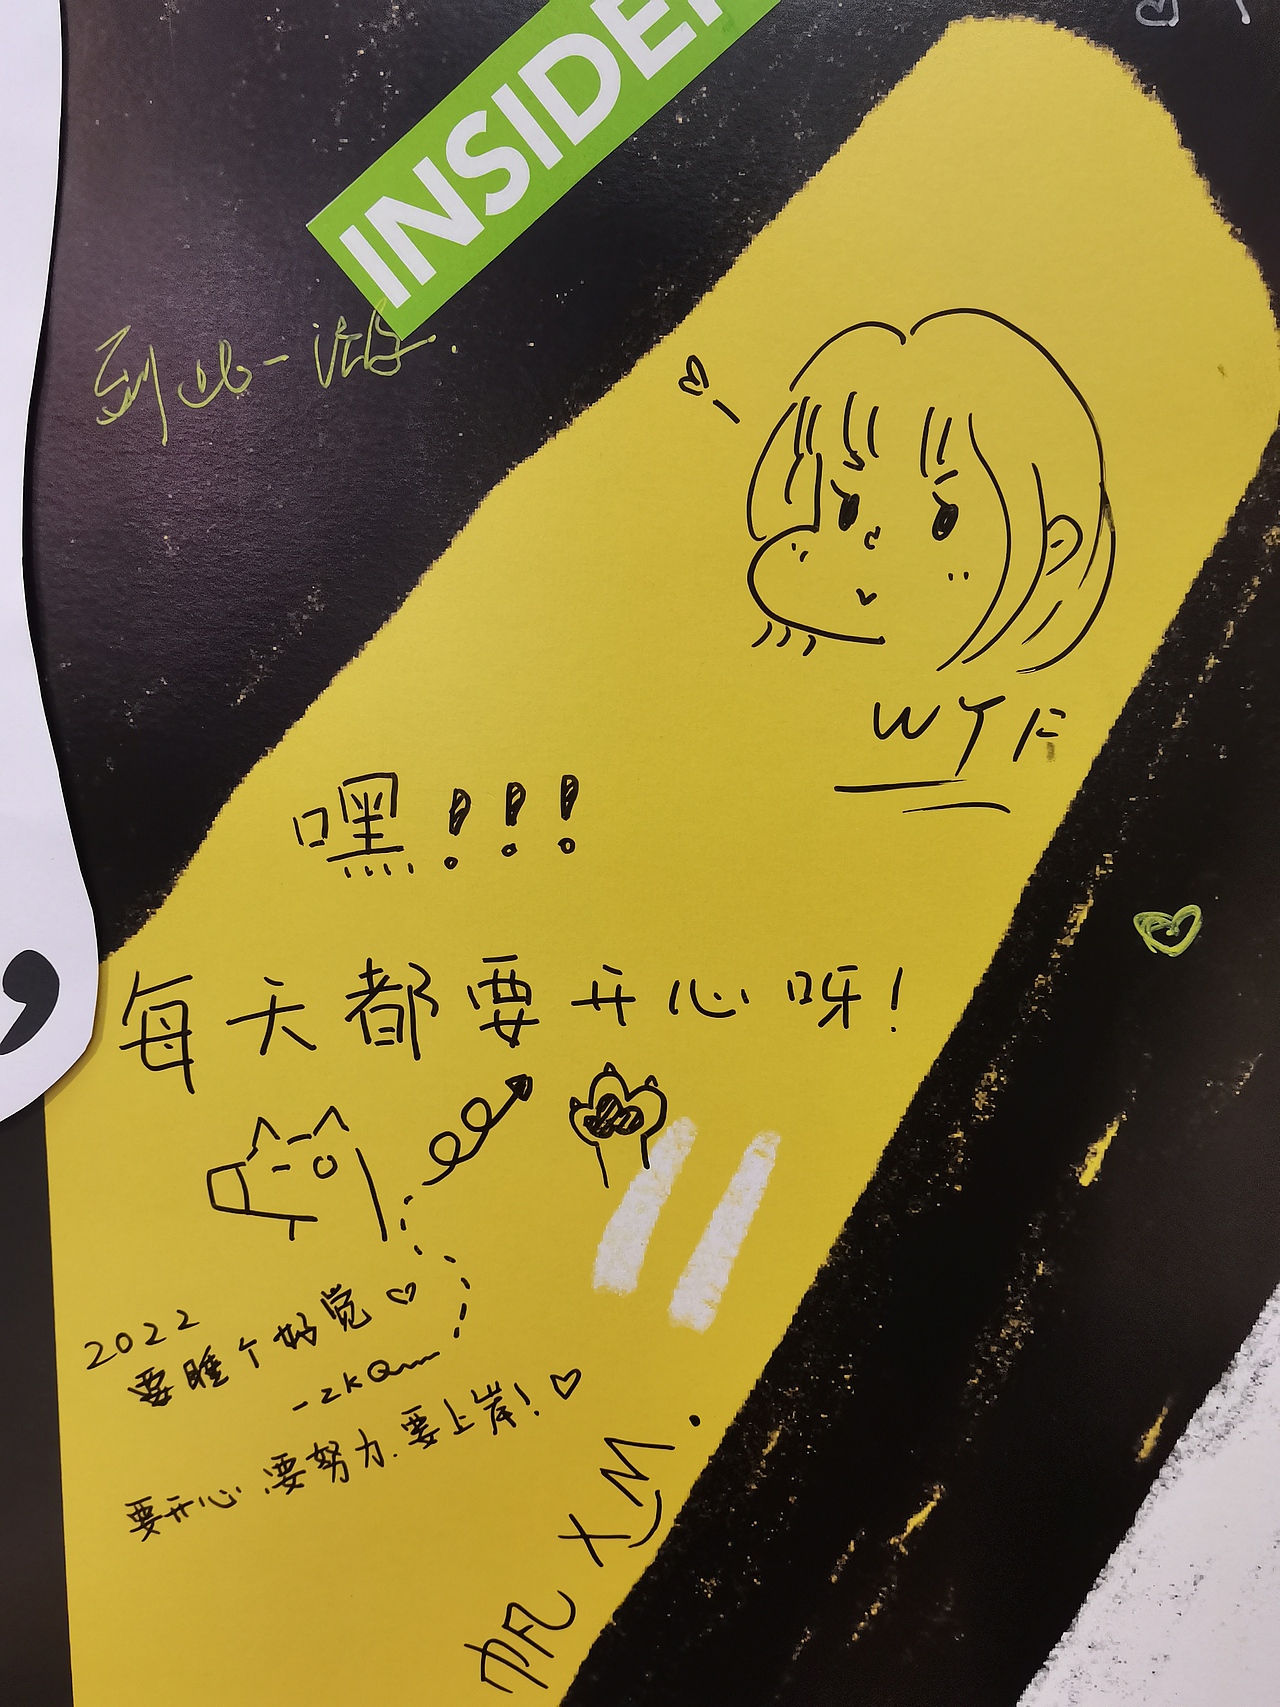 INSIDE
到此一游.
WYF
嘿!!!
每天都要开心呀!
2022
要睡个好觉♡
-ZKQ
要开心、要努力、要上岸!♡
帆 XM.